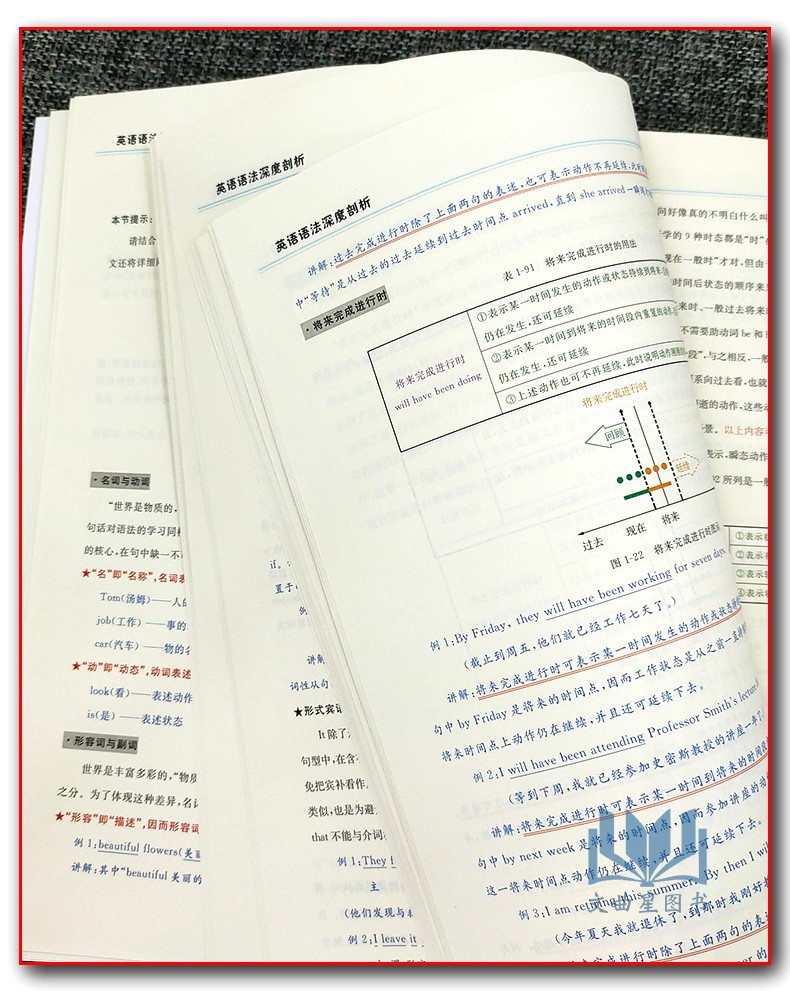 英语语法
本节提示:
请结合
文还将详细
·名词与动词
"世界是物质的,
句话对语法的学习同
的核心,在句中缺一不
★"名"即"名称",名词表
Tom(汤姆)——人的
job(工作)——事的
car(汽车)——物的名
★"动"即"动态",动词表述
look(看)——表述动作
is(是)——表述状态
·形容词与副词
世界是丰富多彩的,"物质
之分。为了体现这种差异,名词
★"形容"即"描述",因而形容词
例 1:beautiful flowers(美丽
讲解:其中"beautiful 美丽的
英语语法深度剖析
if。
置于
例
讲解
词性从句
★形式宾语
It 除了
句型中,在含
免把宾补看作
类似,也是为避
that 不能与介词
例 1:They f
主
(他们发现与
例 2:I leave it
英语语法深度剖析
讲解:过去完成进行时除了上面两句的表述,也可表示动作不再延续,此时
中"等待"是从过去的过去延续到过去时间点 arrived,直到 she arrived 一瞬间
·将来完成进行时
表 1-91 将来完成进行时的用法
将来完成进行时
will have been doing
①表示某一时间发生的动作或状态持续到将来
仍在发生,还可延续
②表示某一时间到将来的时间段内重复的动作
仍在发生,还可延续
③上述动作也可不再延续,此时说明动作刚刚
将来完成进行时
回顾
延续
过去 现在 将来
图 1-22 将来完成进行时图示
例 1:By Friday, they will have been working for seven days.
(截止到周五,他们就已经工作七天了。)
讲解:将来完成进行时可表示某一时间发生的动作或状态持续
句中 by Friday 是将来的时间点,因而工作状态是从之前一直持续
将来时间点上动作仍在继续,并且还可延续下去。
例 2:I will have been attending Professor Smith's lecture
(等到下周,我就已经参加史密斯教授的讲座一年了。)
讲解:将来完成进行时可表示某一时间到将来的时间段
句中 by next week 是将来的时间点,因而参加讲座的动
这一将来时间点动作仍在继续,并且还可延续下去。
例 3:I am retiring this summer. By then I will
(今年夏天我就退休了,到那时我刚好
讲解:将来完成进行时除了上面两句的表述
问好像真的不明白什么叫
学的 9 种时态都是"时"
现在一般时"才对,但由于
时间后状态的顺序来
来时、一般过去将来
不需要助动词 be 和
段",与之相反,一般
系向过去看,也就
逝的动作,这些动
景。以上内容
表示,瞬态动作
02 所列是一般
①表示
②表示
③表示
④表示
文曲星图书